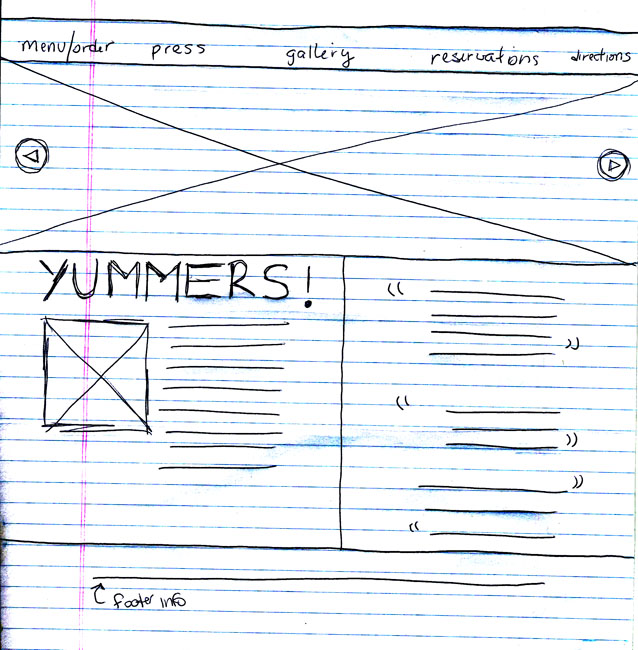 menu/order press gallery reservations directions
YUMMERS!
“
”
“
”
”
“
footer info